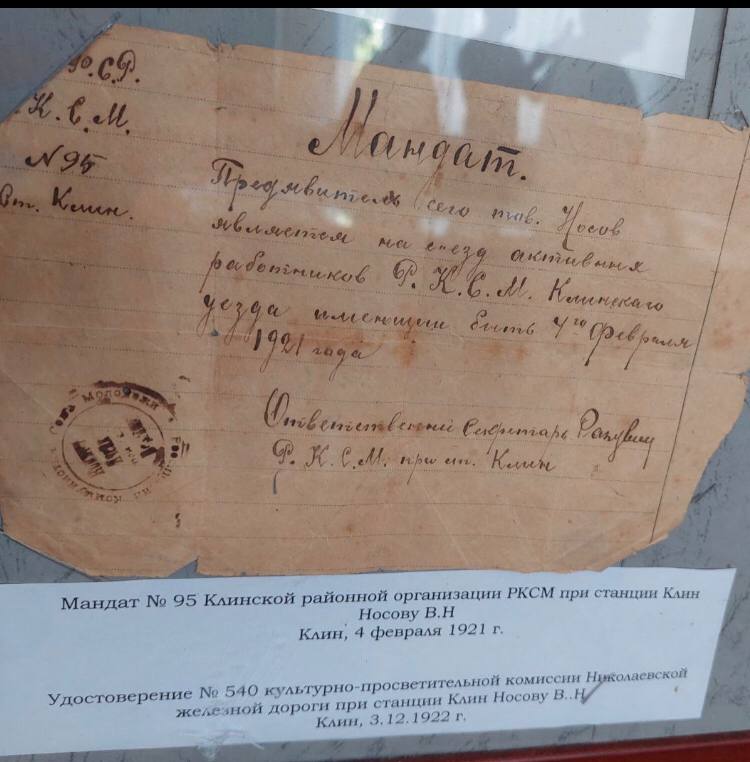 Р.С.Р.
К.С.М.
N 95
Ст. Клин.
Мандат.
Предявитель сего тов. Носов
является на сьезд активных
работников Р.К.С.М. Клинскаго
уезда имеющий быть 4го Февраля
1921 года
Ответственный Секретарь
Р.К.С.М. при ст. Клин
Союз Молодежи
Мандат № 95 Клинской районной организации РКСМ при станции Клин
Носову В.Н
Клин, 4 февраля 1921 г.
Удостоверение № 540 культурно-просветительной комиссии Николаевской
железной дороги при станции Клин Носову В..Н
Клин, 3.12.1922 г.